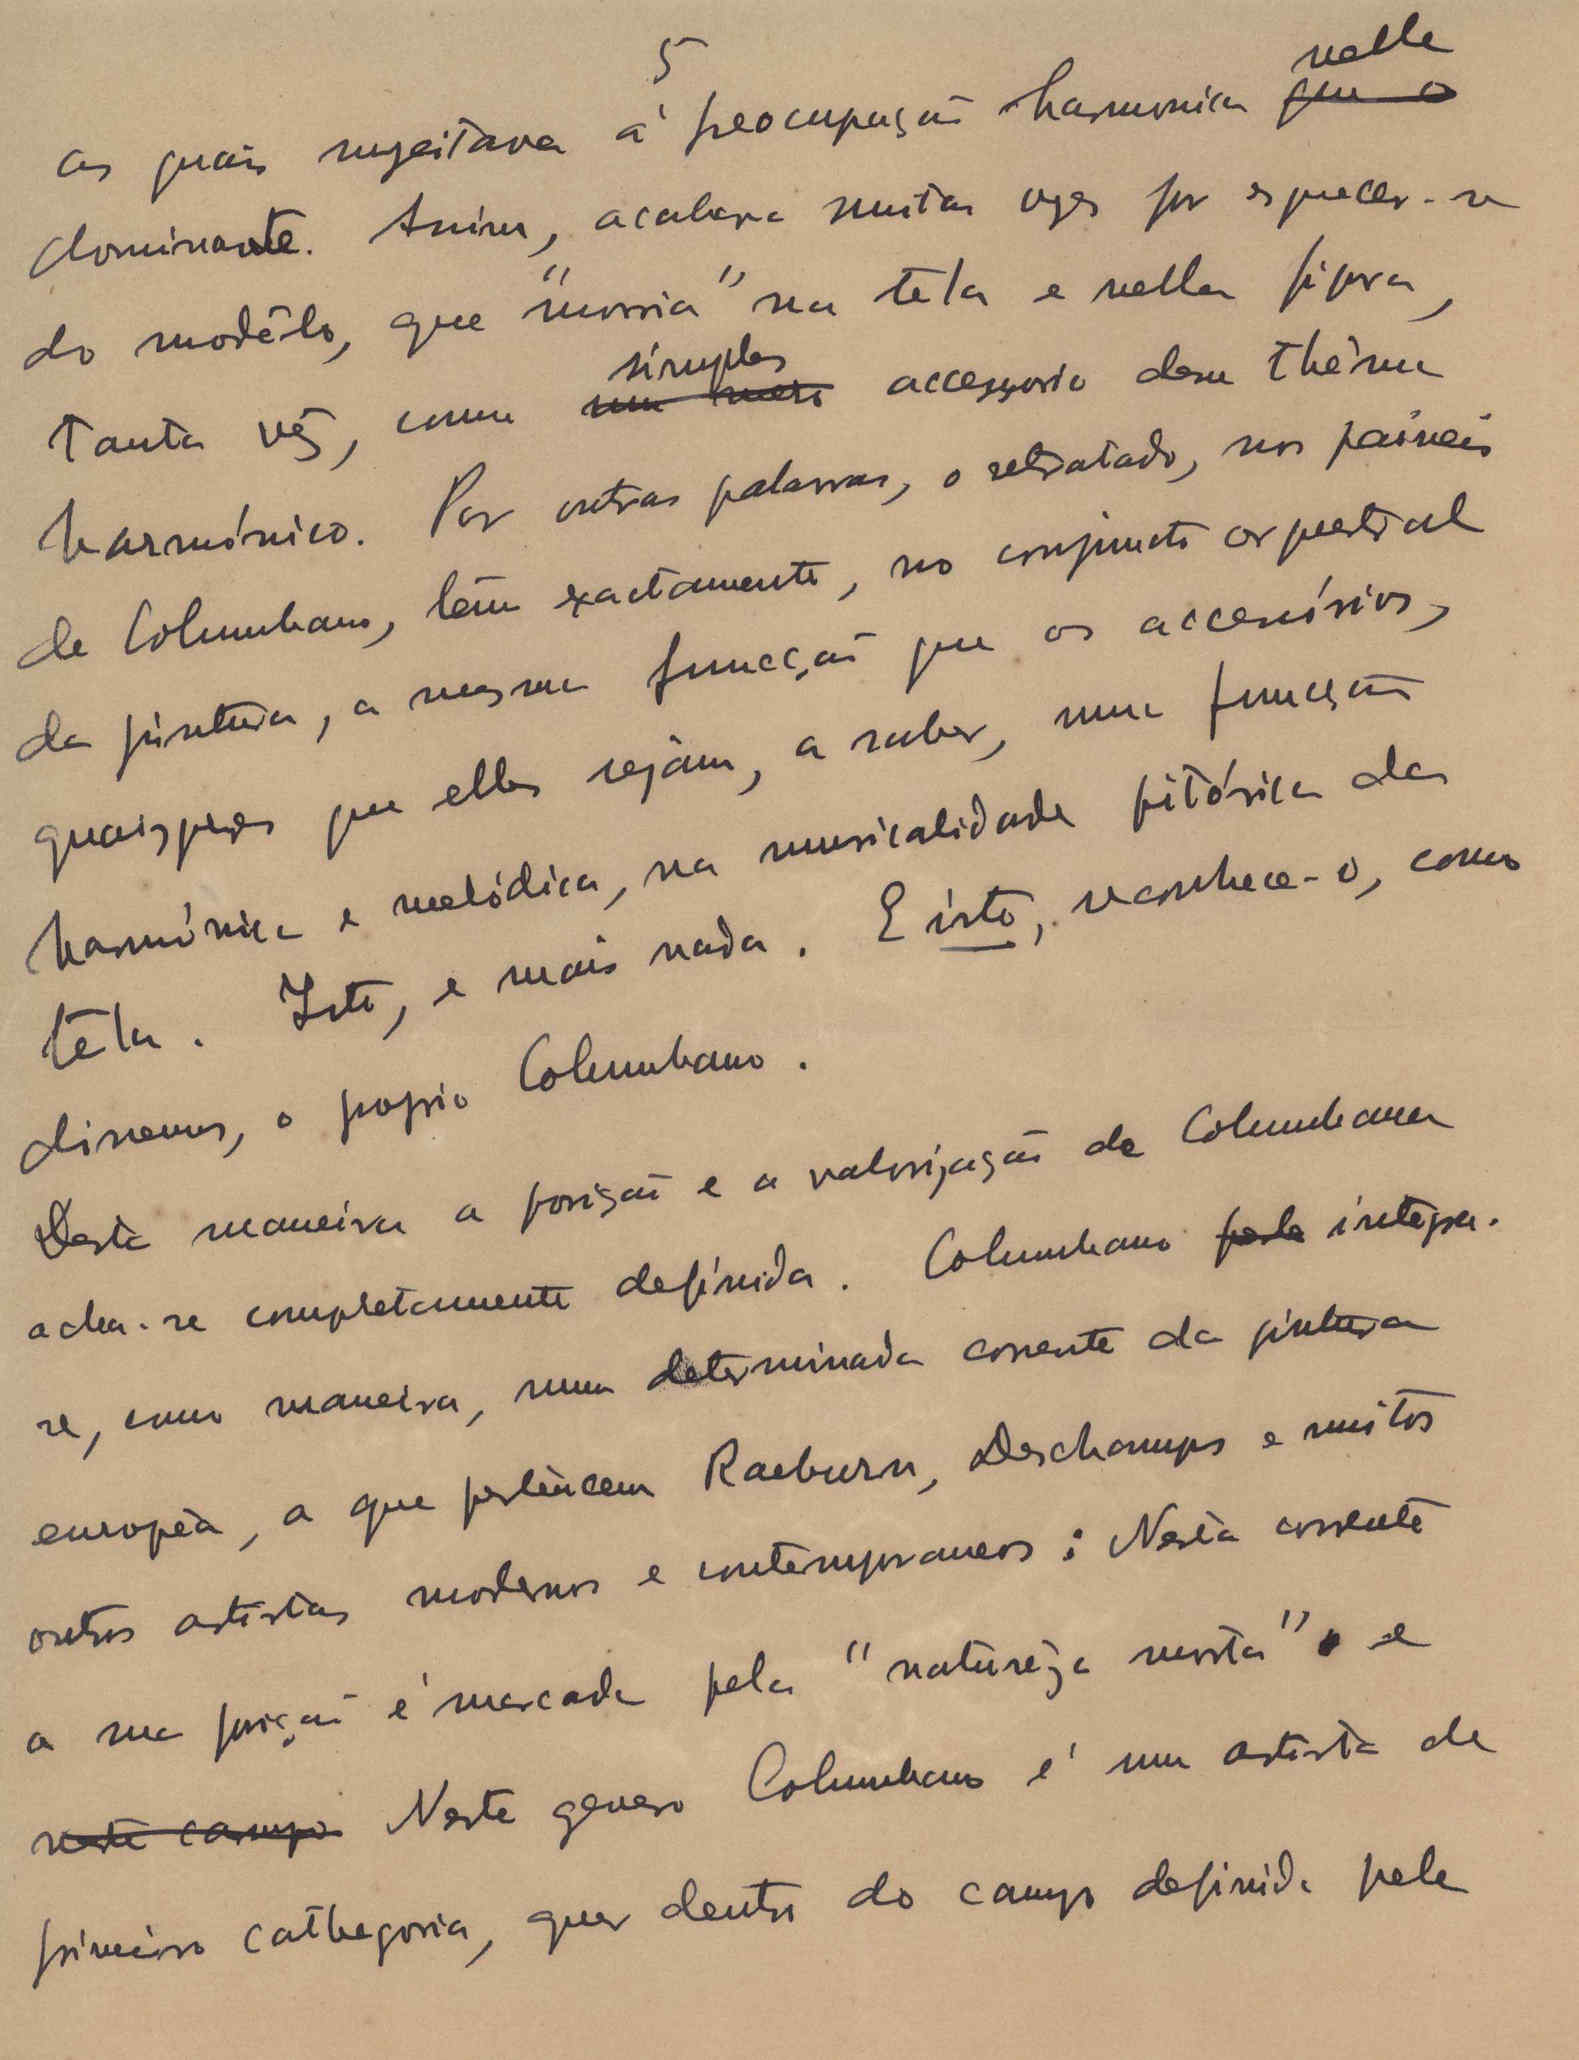 5
as quais sugeitava á preocupação harmonica nelle
que o
dominante. Assim, acabava muitas vezes por esquecer-se
do modêlo, que "morria" na têla e nella figura,
simples
tanta vêz, como um mero accessorio dum théma
harmónico. Por outras palavras, o retratado, nos paineis
de Columbano, têm exactamente, no conjuncto orquestral
da pintura, a mesma funcção que os accessórios,
quaisquer que elles sejam, a saber, uma funcção
harmónica e melódica, na musicalidade pitórica da
têla. Isto, e mais nada. E isto, reconhece-o, como
dissemos, o proprio Columbano.
Desta maneira a posição e a valorização de Columbano
acha-se completamente definida. Columbano pode integra-
se, como maneira, numa determinada corrente da pintura
europêa, a que pertencem Raeburn, Deschamps e muitos
outros artistas modernos e contemporaneos: Nesta corrente
a sua posição é marcada pela "naturêza morta" e
neste campo Neste genero Columbano é um artista de
primeira cathegoria, quer dentro do campo definido pela